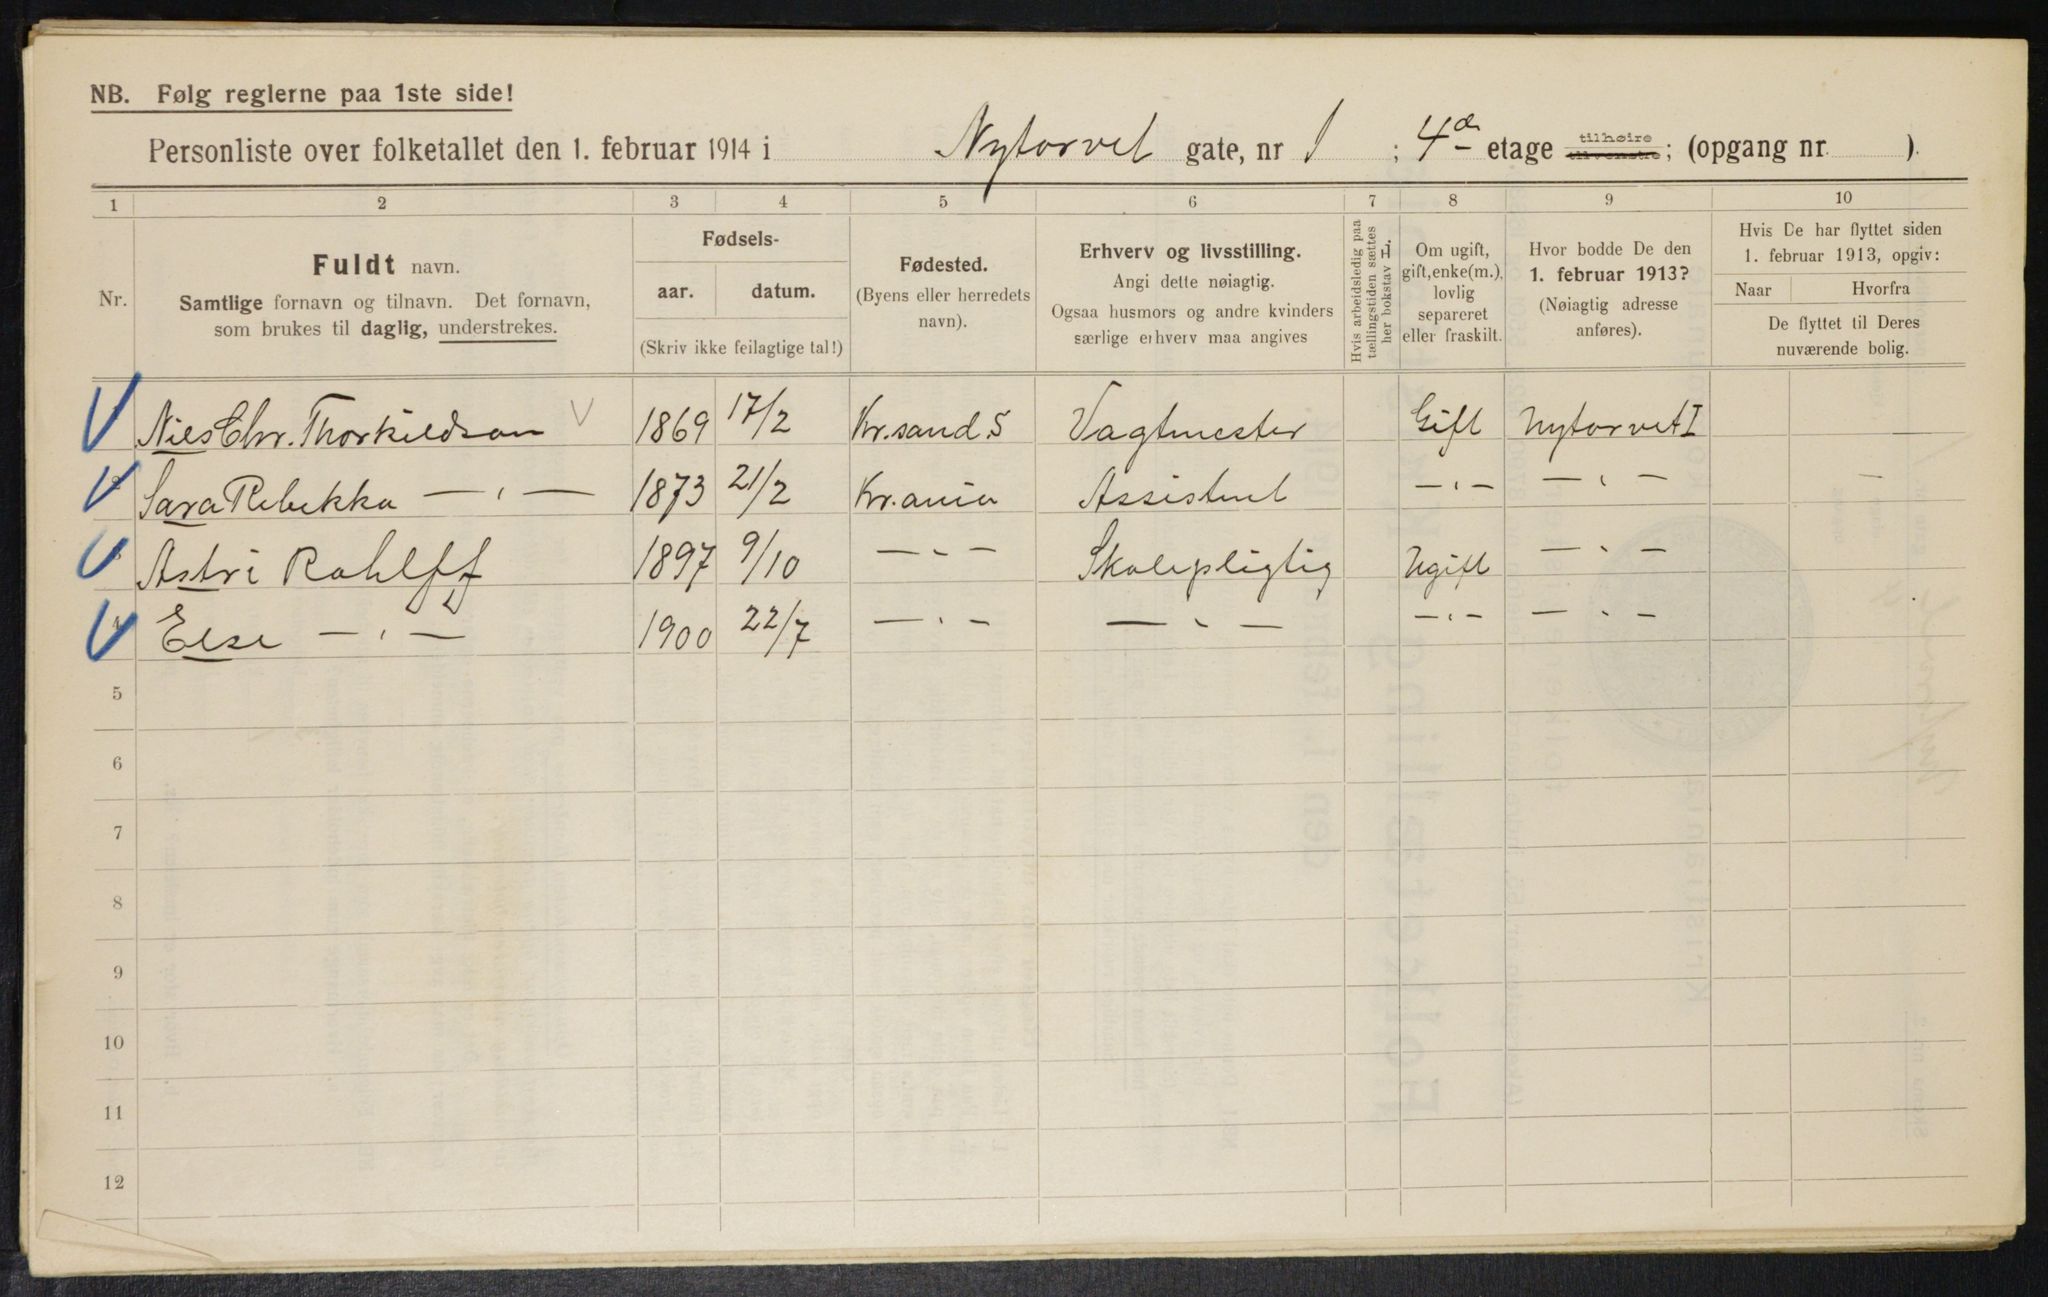 NB. Følg reglerne paa 1ste side!
Personliste over folketallet den 1. februar 1914 i Nytorvet gate, nr 1 ; 4de etage tilhøire tilvenstre; (opgang nr. ).
1 2 3 4 5 6 7 8 9 10
Nr.
Fuldt navn.
Samtlige fornavn og tilnavn. Det fornavn,
som brukes til daglig, understrekes.
Fødsels-
aar. datum.
(Skriv ikke feilagtige tal!)
Fødested.
(Byens eller herredets
navn).
Erhverv og livsstilling.
Angi dette nøiagtig.
Ogsaa husmors og andre kvinders
særlige erhverv maa angives
Hvis arbeidsledig paa
tællingstiden sættes
her bokstav L.
Om ugift,
gift, enke(m.),
lovlig
separeret
eller fraskilt.
Hvor bodde De den
1. februar 1913?
(Nøiagtig adresse
anføres).
Hvis De har flyttet siden
1. februar 1913, opgiv:
Naar Hvorfra
De flyttet til Deres
nuværende bolig.
Niels Chr. Thorkildson 1869 17/2 Kr.sand.S Vagtmester Gift Nytorvet I
2 Sara Rebekka —"— 1873 21/2 Kr.ania Assistent —"— —"— —
3 Astri Rohlff 1897 9/10 —"— Skolepligtig Ugift —"—
4 Else —"— 1900 22/7 —"— —"— —"— —"—
5
6
7
8
9
10
11
12